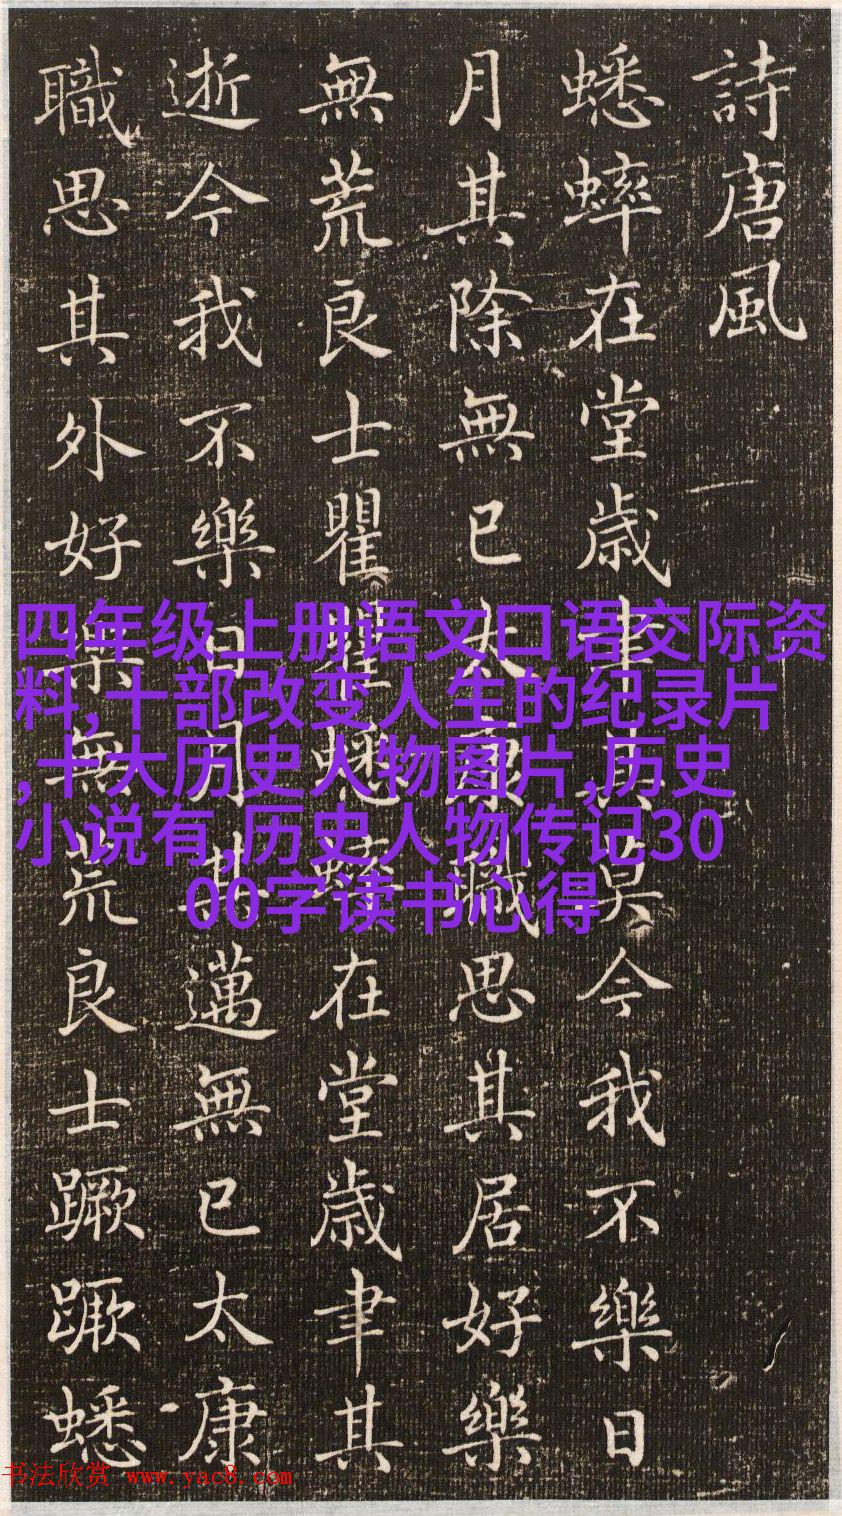 詩唐風
蟋蟀在堂歳聿其莫今我不樂日
月其除無已大康職思其居好樂
無荒良士瞿瞿蟋蟀在堂歳聿其
逝今我不樂日月其邁無已太康
職思其外好樂無荒良士蹶蹶蟋
四年级上册语文口语交际资
料,十部改变人生的纪录片
,十大历史人物图片,历史
小说有,历史人物传记30
00字读书心得
书法欣赏 www.yac8.com